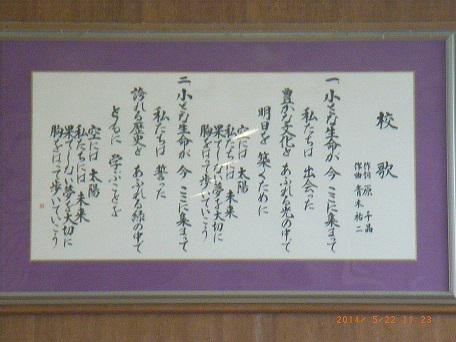 校歌
作詞 原 千晶
作曲 青木祐二
一 小さな生命が 今 ここに集まって
私たちは 出会った
豊かな文化と あふれる光の中で
明日を 築くために
空には 太陽
私たちには 未来
果てしない夢を大切に
胸をはって歩いていこう
二 小さな生命が 今 ここに集まって
私たちは 誓った
誇れる歴史と あふれる緑の中で
ともに 学ぶことを
空には 太陽
私たちには 未来
果てしない夢を大切に
胸をはって歩いていこう
2014/ 5/22 11:23